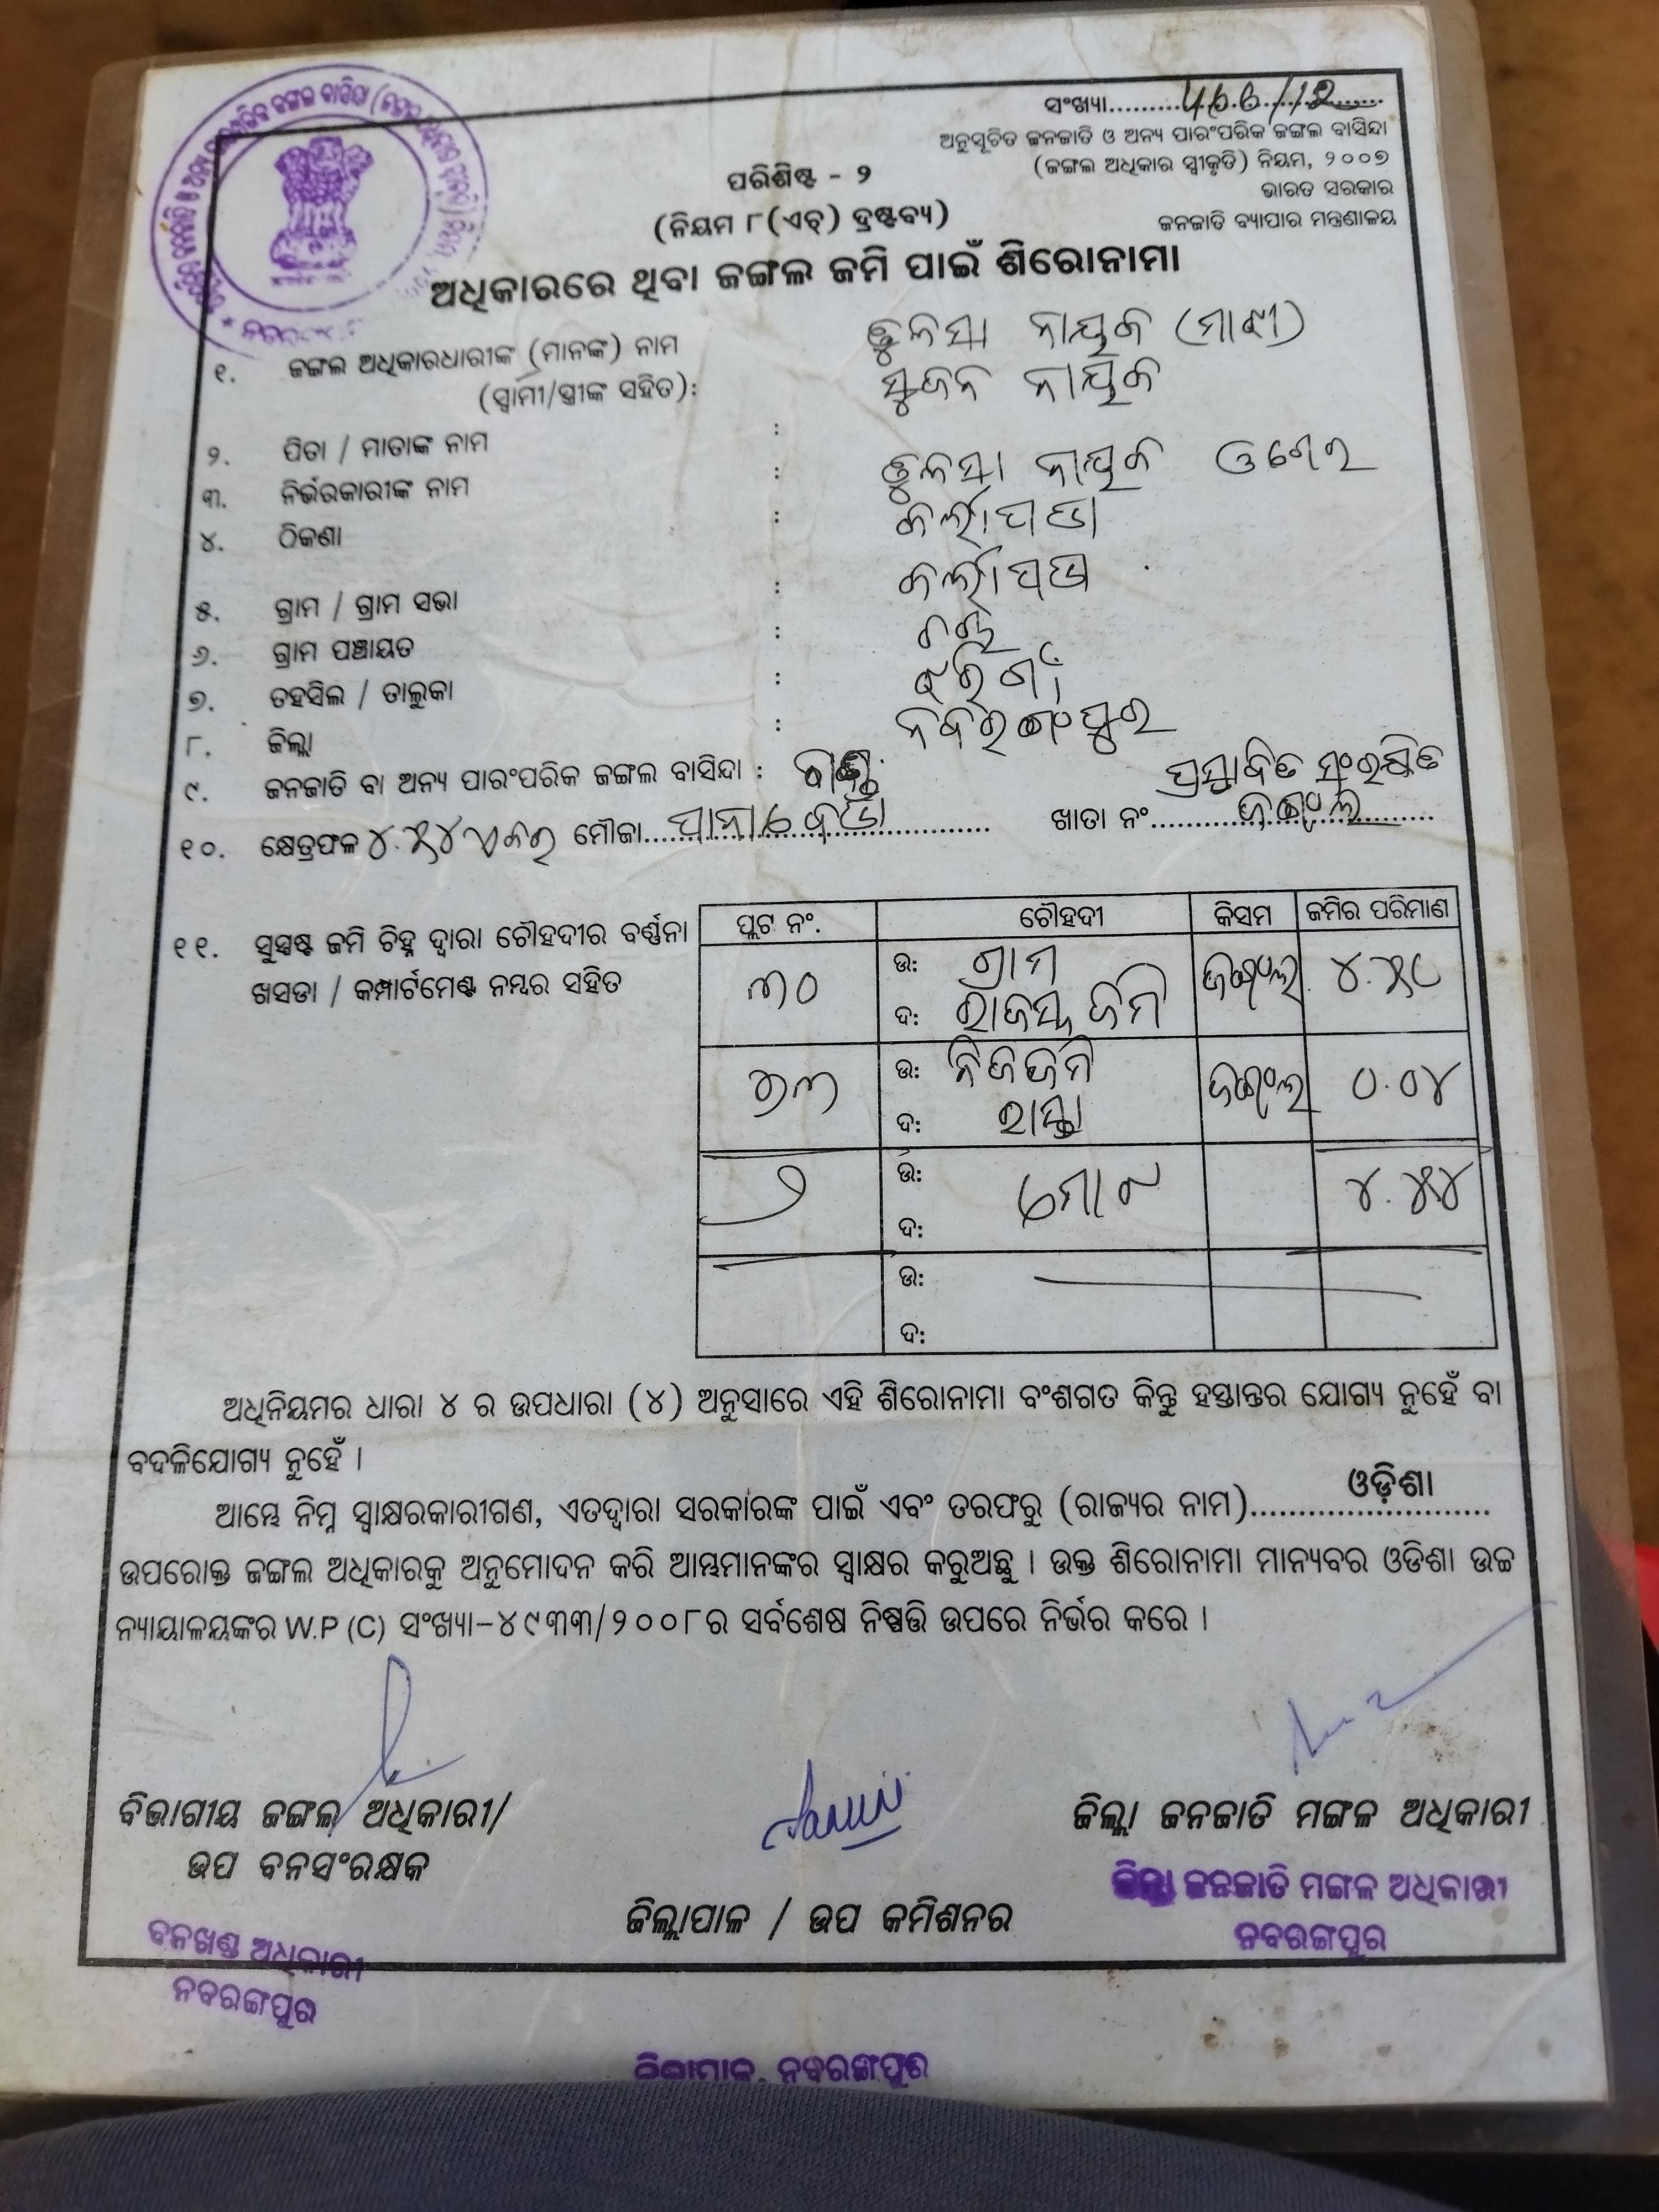 ସଂଖ୍ୟା
ଅନୁସୂଚିତ ଜନଜାତି ଓ ଅନ୍ୟ ପାରଂପରିକ ଜଙ୍ଗଲ ବାସିନ୍ଦା
(ଜଙ୍ଗଲ ଅଧିକାର ସ୍ୱୀକୃତି) ନିୟମ, ୨୦୦୭
ଭାରତ ସରକାର
ଜନଜାତି ବ୍ୟାପାର ମନ୍ତ୍ରଣାଳୟ
ପରିଶିଷ୍ଟ - ୨
(ନିୟମ ୮(ଏଚ୍) ଦ୍ରଷ୍ଟବ୍ୟ)
ଅଧିକାରରେ ଥିବା ଜଙ୍ଗଲ ଜମି ପାଇଁ ଶିରୋନାମା
୧. ଜଙ୍ଗଲ ଅଧିକାରଧାରୀଙ୍କ (ମାନଙ୍କ) ନାମ ତୁଳସା ନାୟକ (ମାଝୀ)
(ସ୍ୱାମୀ/ସ୍ତ୍ରୀଙ୍କ ସହିତ): ସୁଜନ ନାୟକ
୨. ପିତା / ମାତାଙ୍କ ନାମ :
୩. ନିର୍ଭରକାରୀଙ୍କ ନାମ : ତୁଳସା ନାୟକ
୪. ଠିକଣା :
୫. ଗ୍ରାମ / ଗ୍ରାମ ସଭା :
୬. ଗ୍ରାମ ପଞ୍ଚାୟତ :
୭. ତହସିଲ / ତାଲୁକା : ଝରିଗାଁ
୮. ଜିଲ୍ଲା : ନବରଙ୍ଗପୁର
୯. ଜନଜାତି ବା ଅନ୍ୟ ପାରଂପରିକ ଜଙ୍ଗଲ ବାସିନ୍ଦା : ପ୍ରସ୍ତାବିତ ସଂରକ୍ଷିତ
୧୦. କ୍ଷେତ୍ରଫଳ ୪.୫୪ ଏକର ମୌଜା ଖାତା ନଂ ଜଙ୍ଗଲ
୧୧. ସୁସ୍ପଷ୍ଟ ଜମି ଚିହ୍ନ ଦ୍ୱାରା ଚୌହଦୀର ବର୍ଣ୍ଣନା
ଖସଡା / କମ୍ପାର୍ଟମେଣ୍ଟ ନମ୍ବର ସହିତ
ପ୍ଲଟ ନଂ. ଚୌହଦୀ କିସମ ଜମିର ପରିମାଣ
୩୦ ଉ: ଗ୍ରାମ ଜଙ୍ଗଲ ୪.୫୦
ଦ: ରାଜସ୍ୱ ଜମି
ଉ: ନିଜ ଜମି ଜଙ୍ଗଲ ୦.୦୪
ଦ: ରାସ୍ତା
୨ ଉ: ମୋଟ ୪.୫୪
ଦ:
ଉ:
ଦ:
ଅଧିନିୟମର ଧାରା ୪ ର ଉପଧାରା (୪) ଅନୁସାରେ ଏହି ଶିରୋନାମା ବଂଶଗତ କିନ୍ତୁ ହସ୍ତାନ୍ତର ଯୋଗ୍ୟ ନୁହେଁ ବା
ବଦଳିଯୋଗ୍ୟ ନୁହେଁ ।
ଆମ୍ଭେ ନିମ୍ନ ସ୍ୱାକ୍ଷରକାରୀଗଣ, ଏତଦ୍ୱାରା ସରକାରଙ୍କ ପାଇଁ ଏବଂ ତରଫରୁ (ରାଜ୍ୟର ନାମ) ଓଡ଼ିଶା
ଉପରୋକ୍ତ ଜଙ୍ଗଲ ଅଧିକାରକୁ ଅନୁମୋଦନ କରି ଆମ୍ଭମାନଙ୍କର ସ୍ୱାକ୍ଷର କରୁଅଛୁ । ଉକ୍ତ ଶିରୋନାମା ମାନ୍ୟବର ଓଡିଶା ଉଚ୍ଚ
ନ୍ୟାୟାଳୟଙ୍କର W.P (C) ସଂଖ୍ୟା-୪୯୩୩/୨୦୦୮ର ସର୍ବଶେଷ ନିଷ୍ପତ୍ତି ଉପରେ ନିର୍ଭର କରେ ।
ବିଭାଗୀୟ ଜଙ୍ଗଲ ଅଧିକାରୀ/
ଉପ ବନସଂରକ୍ଷକ
ଜିଲ୍ଲାପାଳ / ଉପ କମିଶନର
ଜିଲ୍ଲା ଜନଜାତି ମଙ୍ଗଳ ଅଧିକାରୀ
ଜିଲ୍ଲା ଜନଜାତି ମଙ୍ଗଳ ଅଧିକାରୀ
ନବରଙ୍ଗପୁର
ବନଖଣ୍ଡ ଅଧିକାରୀ
ନବରଙ୍ଗପୁର
ଜିଲ୍ଲାପାଳ, ନବରଙ୍ଗପୁର